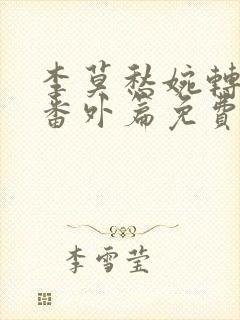 李莫愁婉轉
番外篇免費
李雪莹